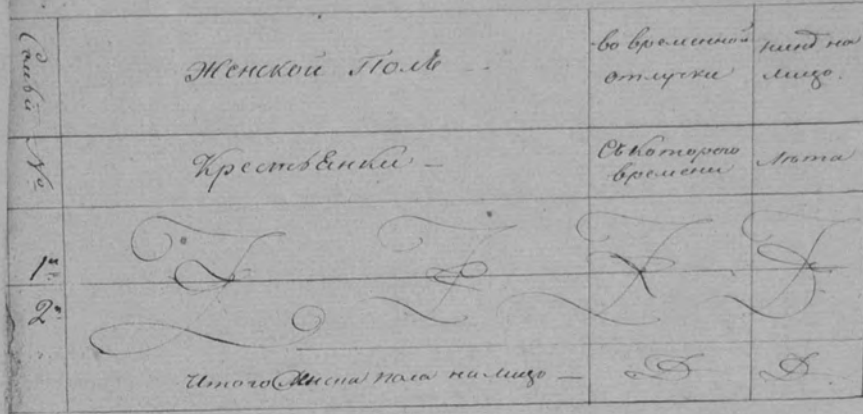 Семьи
Женской Полъ
во временной
отлучки
нинѣ на
лицо.
№
Крестьянки
Съ которого
времени
Лѣта
1й
2й
Итого женска пола на лицо